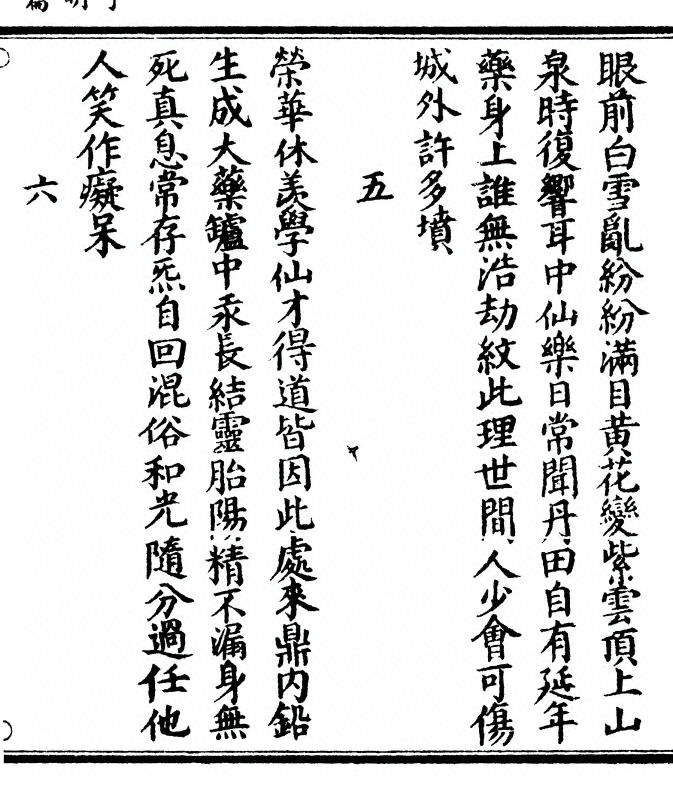 眼前白雪亂紛紛滿目黃花變紫雲頂上山
泉時復響耳中仙樂日常聞丹田自有延年
藥身上誰無浩劫紋此理世間人少會可傷
城外許多墳
五
榮華休羨學仙才得道皆因此處來鼎內鉛
生成大藥鑪中汞長結靈胎陽精不漏身無
死真息常存炁自回混俗和光隨分過任他
人笑作癡呆
六